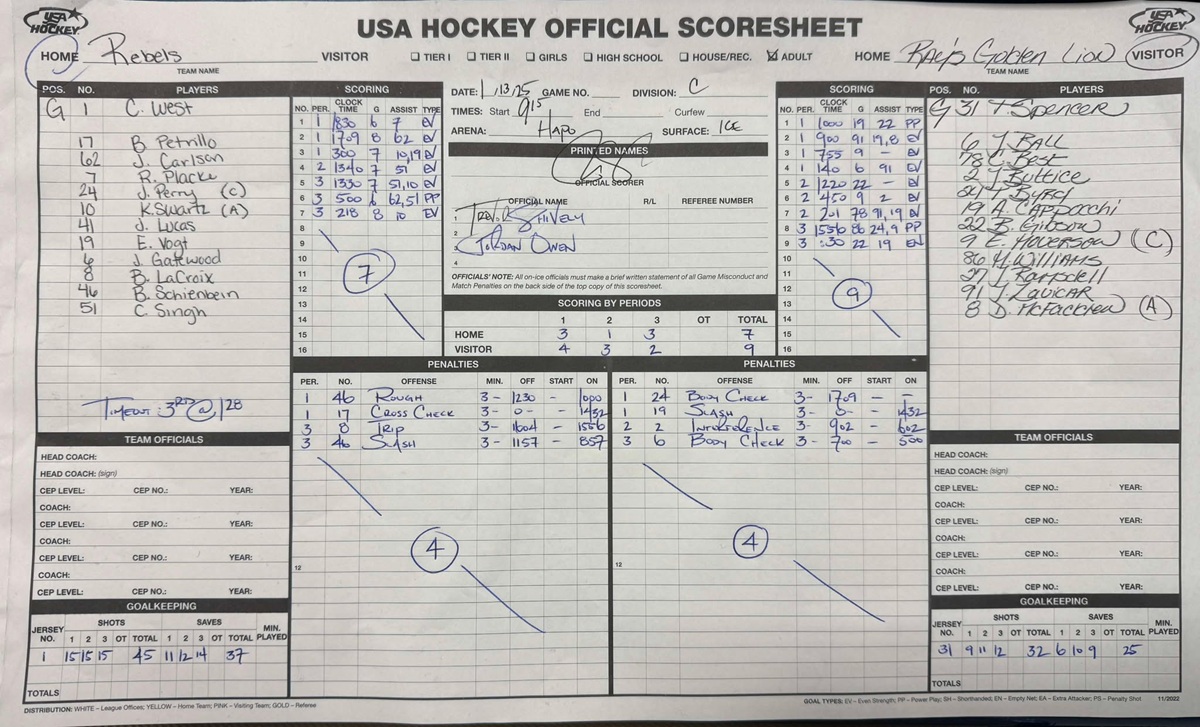 USA HOCKEY
USA HOCKEY OFFICIAL SCORESHEET
USA HOCKEY
HOME Rebels VISITOR ☐ TIER I ☐ TIER II ☐ GIRLS ☐ HIGH SCHOOL ☐ HOUSE/REC. ☒ ADULT HOME Rae's Golden Lion VISITOR
TEAM NAME TEAM NAME
POS. NO. PLAYERS
G 1 C. West
17 B. Petrillo
62 J. Carlson
7 R. Placke
24 J. Perry (C)
10 K. Swartz (A)
41 J. Lucas
19 E. Vogt
6 J. Gatewood
8 B. LaCroix
46 B. Schienbein
51 C. Singh
TIMEOUT 3RD @ 128
SCORING
NO. PER. CLOCK TIME G ASSIST TYPE
1 1 1830 6 7 EV
2 1 1709 8 62 EV
3 1 300 7 10,19 EV
4 2 1340 7 51 EV
5 3 1330 7 51,10 EV
6 3 500 6 62,51 PP
7 3 218 8 10 EV
8
9
10
11
12
13
14
15
16
7
DATE: 1/13/25 GAME NO. DIVISION: C
TIMES: Start 915 End Curfew
ARENA: HAPO SURFACE: ICE
PRINTED NAMES
OFFICIAL SCORER
OFFICIAL NAME R/L REFEREE NUMBER
1 TREVOR SHIVELY
2
3 JORDAN OWEN
4
OFFICIALS' NOTE: All on-ice officials must make a brief written statement of all Game Misconduct and
Match Penalties on the back side of the top copy of this scoresheet.
SCORING BY PERIODS
1 2 3 OT TOTAL
HOME 3 1 3 7
VISITOR 4 3 2 9
SCORING
NO. PER. CLOCK TIME G ASSIST TYPE
1 1 1000 19 22 PP
2 1 900 91 19,8 EV
3 1 755 9 - EV
4 1 140 6 91 EV
5 2 1220 22 - EV
6 2 450 9 2 EV
7 2 201 78 91,19 EV
8 3 1556 86 24,9 PP
9 3 :30 22 19 EN
10
11
12
13
14
15
16
9
POS. NO. PLAYERS
G 31 T. SPENCER
6 J. BALL
78 C. BEST
2 J. Buttice
24 Byrd
19 A. CAPPOCCHI
22 B. Gibson
9 E. HOVERSON (C)
86 H. WILLIAMS
27 J. Ramsdell
91 J. LAVICAR
8 D. McFADDEN (A)
PENALTIES
PER. NO. OFFENSE MIN. OFF START ON
1 46 ROUGH 3 - 1230 - 1000
1 17 CROSS CHECK 3 - 0 - - 1432
3 8 TRIP 3 - 1604 - 1556
3 46 SLASH 3 - 1157 - 857
4
12
PENALTIES
PER. NO. OFFENSE MIN. OFF START ON
1 24 BODY CHECK 3 - 1709 - -
1 19 SLASH 3 - 0 - - 1432
2 2 INTERFERENCE 3 - 902 - 602
3 6 BODY CHECK 3 - 700 - 500
4
12
TEAM OFFICIALS
HEAD COACH:
HEAD COACH: (sign)
CEP LEVEL: CEP NO.: YEAR:
COACH:
CEP LEVEL: CEP NO.: YEAR:
COACH:
CEP LEVEL: CEP NO.: YEAR:
COACH:
CEP LEVEL: CEP NO.: YEAR:
GOALKEEPING
JERSEY NO. SHOTS 1 2 3 OT TOTAL SAVES 1 2 3 OT TOTAL MIN. PLAYED
1 15 15 15 45 11 12 14 37
TOTALS
TEAM OFFICIALS
HEAD COACH:
HEAD COACH: (sign)
CEP LEVEL: CEP NO.: YEAR:
COACH:
CEP LEVEL: CEP NO.: YEAR:
COACH:
CEP LEVEL: CEP NO.: YEAR:
COACH:
CEP LEVEL: CEP NO.: YEAR:
GOALKEEPING
JERSEY NO. SHOTS 1 2 3 OT TOTAL SAVES 1 2 3 OT TOTAL MIN. PLAYED
31 9 11 12 32 6 10 9 25
TOTALS
DISTRIBUTION: WHITE – League Offices; YELLOW – Home Team; PINK – Visiting Team; GOLD – Referee
GOAL TYPES: EV – Even Strength; PP – Power Play; SH – Shorthanded; EN – Empty Net; EA – Extra Attacker; PS – Penalty Shot 11/2022